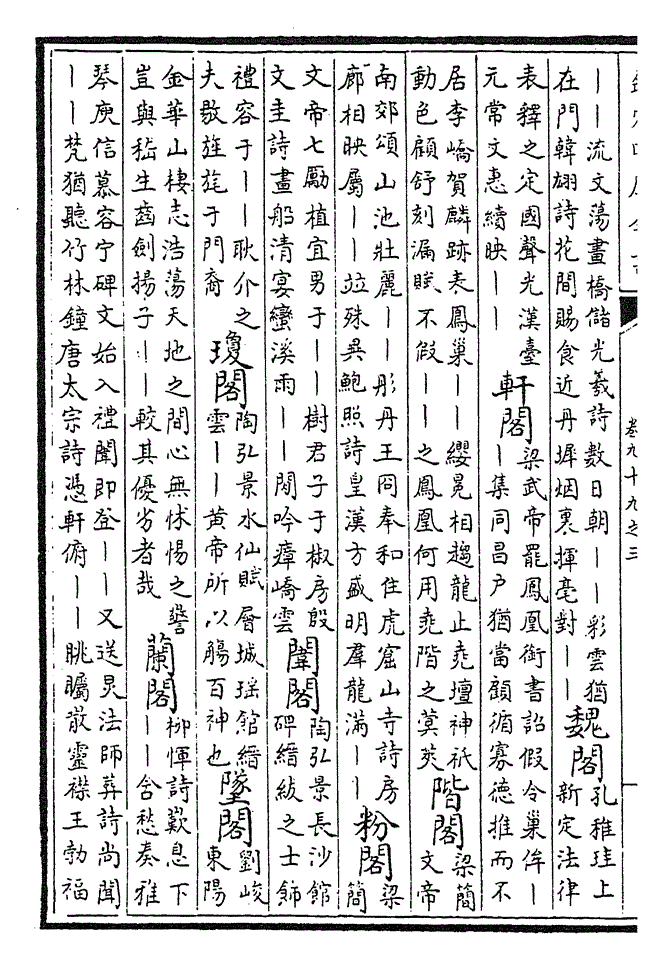 丨丨流文蕩畫橋儲光羲詩數日朝丨丨彩雲猶
在門韓翃詩花間賜食近丹墀烟裏揮毫對丨丨
魏閣
孔稚珪上
新定法律
表釋之定國聲光漢臺
元常文惠續映丨丨
軒閣
梁武帝罷鳳凰銜書詔假令巢侔丨
丨集同昌户猶當顧循寡德推而不
居李嶠賀麟跡表鳳巢丨丨纓冕相趨龍止堯壇神祇
動色顧舒刻漏賦不假丨丨之鳳凰何用堯階之蓂莢
階閣
梁簡
文帝
南郊頌山池壯麗丨丨彤丹王冏奉和往虎窟山寺詩房
廊相映屬丨丨竝殊異鮑照詩皇漢方盛明羣龍滿丨丨
粉閣
梁
簡
文帝七勵植宜男于丨丨樹君子于椒房殷
文圭詩畫船清宴蠻溪雨丨丨閒吟瘴嶠雲
闈閣
陶弘景長沙館
碑縉紱之士飾
禮容于丨丨耿介之
夫敬旌旄于門裔
瓊閣
陶弘景水仙賦層城瑶館縉
雲丨丨黄帝所以觴百神也
墜閣
劉峻
東陽
金華山棲志浩蕩天地之間心無怵惕之警
豈與嵇生齒劍揚子丨丨較其優劣者哉
蘭閣
柳惲詩歎息下
丨丨含愁奏雅
琴庾信慕容宁碑文始入禮聞即登丨丨又送炅法師葬詩尚聞
丨丨梵猶聽竹林鐘唐太宗詩憑軒俯丨丨眺矚散靈襟王勃福
卷九十九之三